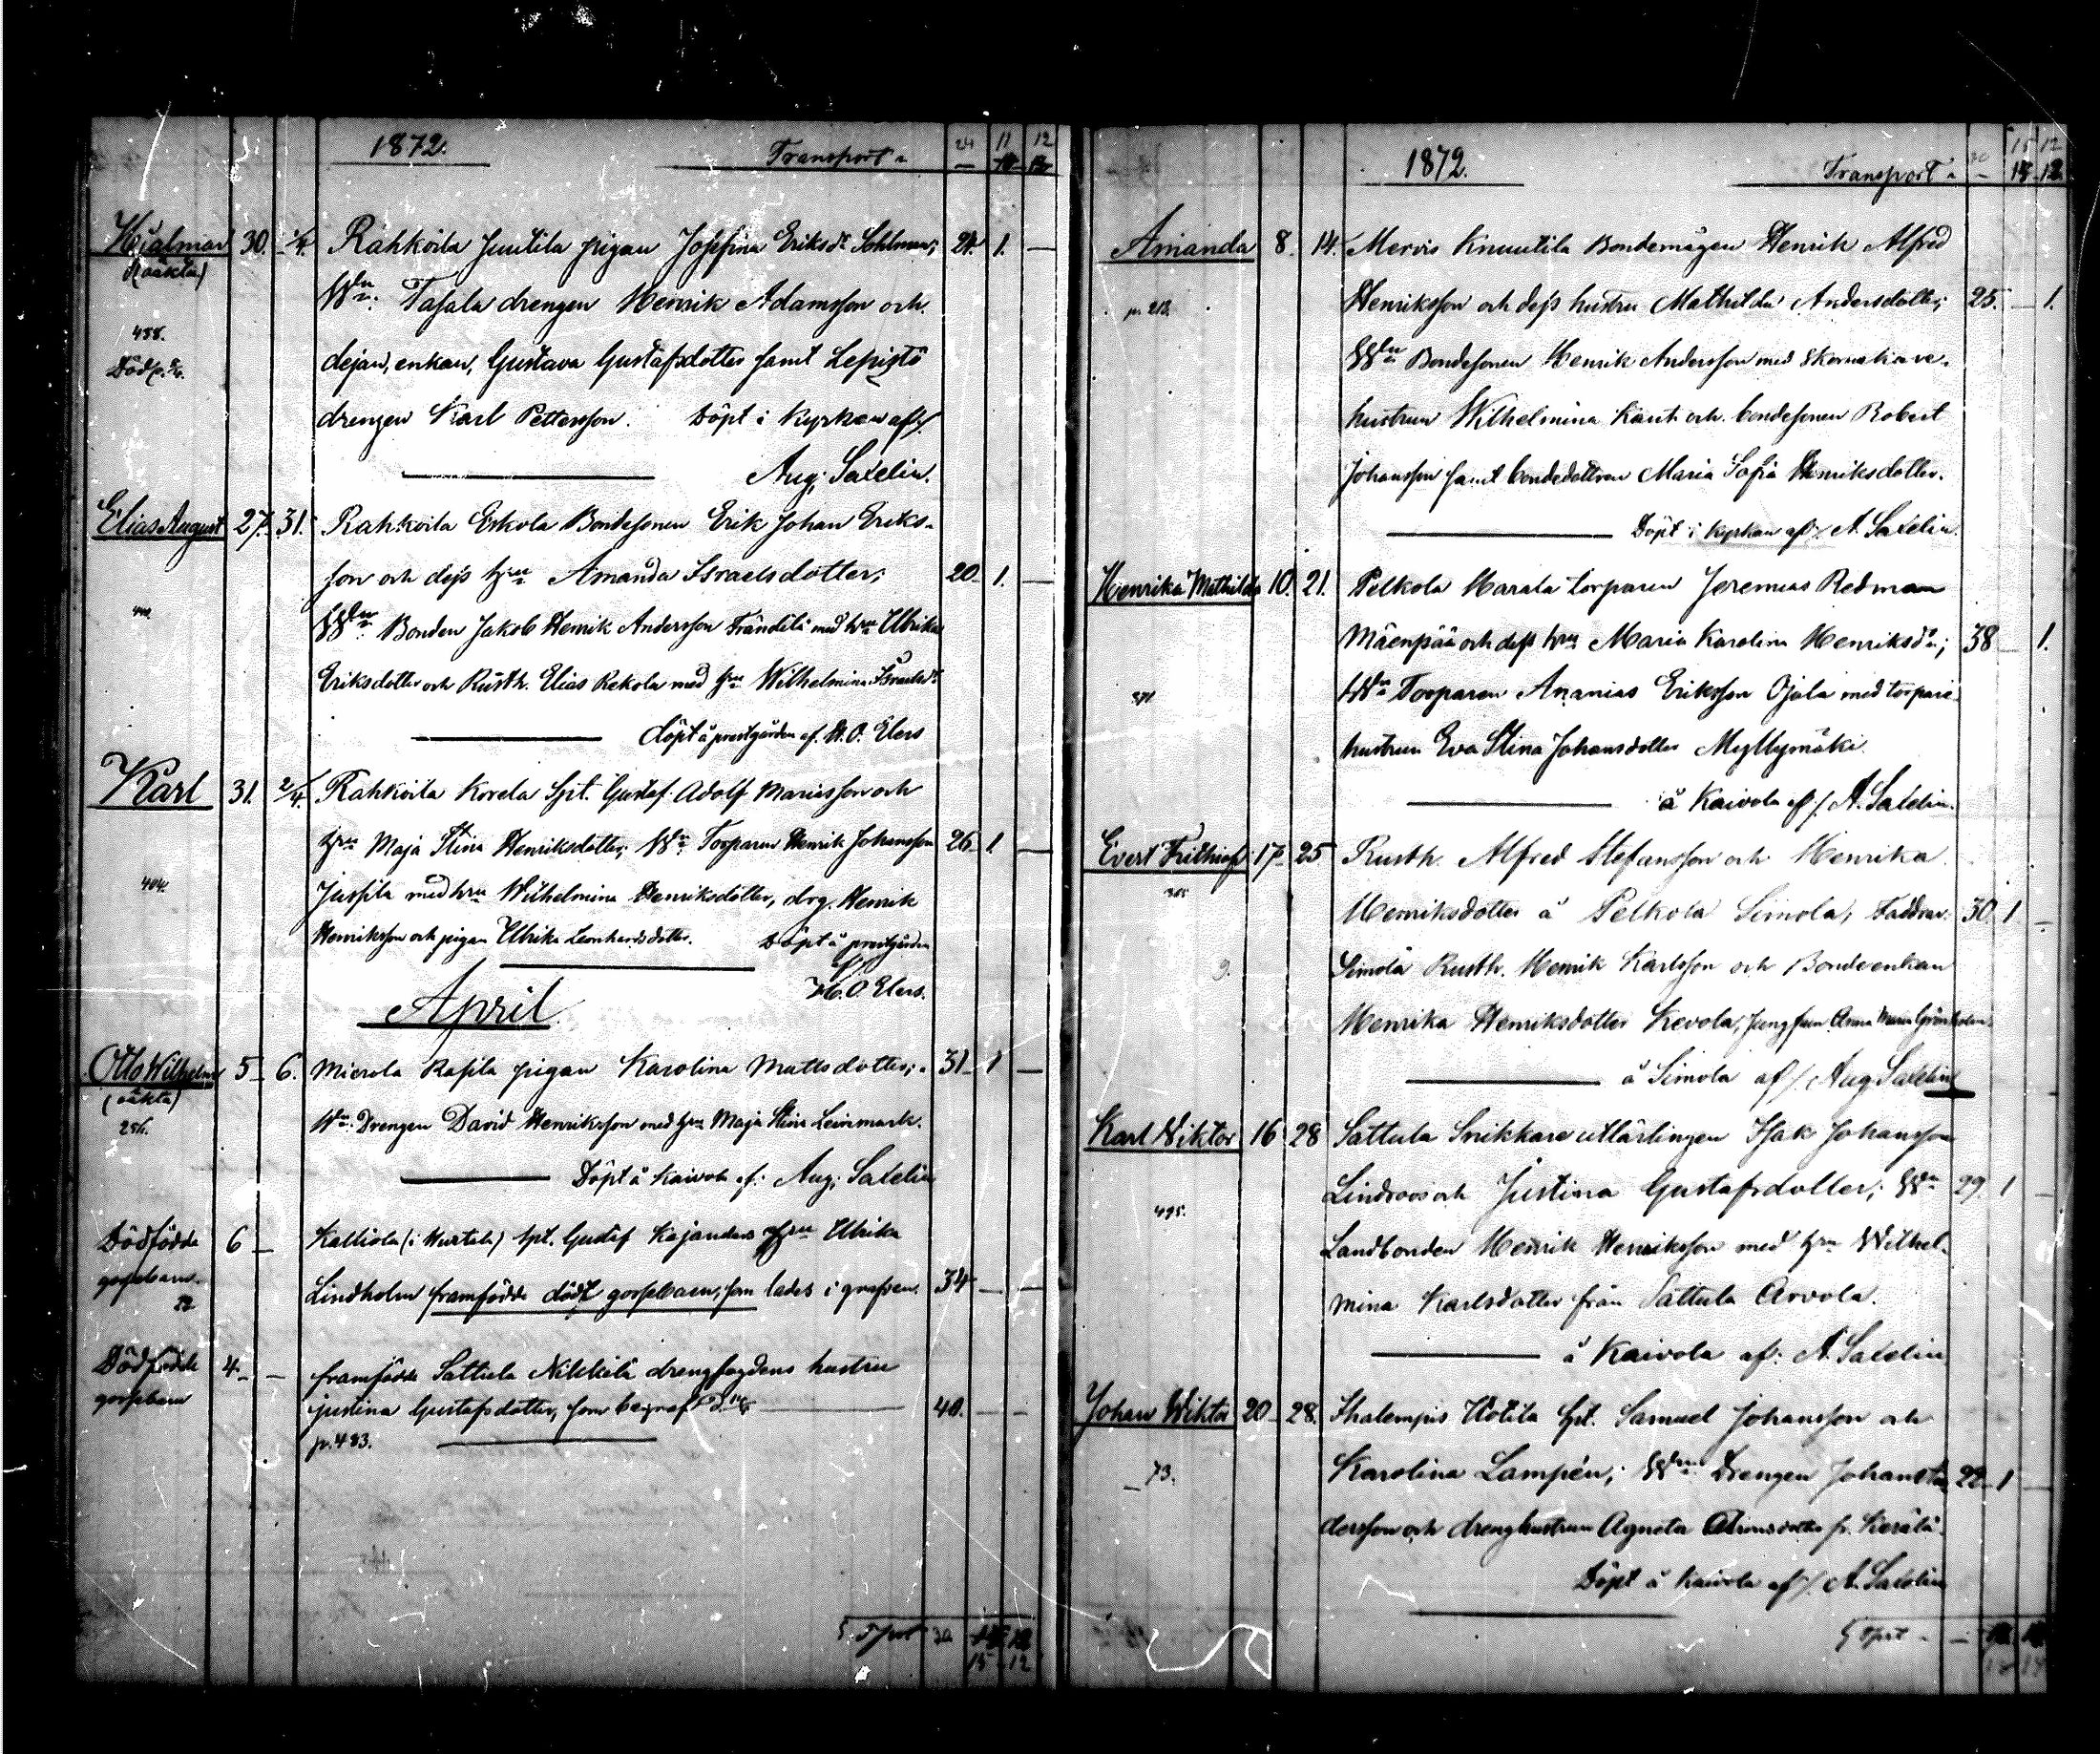 1872. Transport 24 11 12
Hjalmar 30. 1/4. Rahkoila Juutila pigan Josefina Eriksdr Sohlman; 24. 1. —
(oäkta) Wn. Tasala drengen Henrik Adamsson och
488. dejan, enkan, Gustava Gustafsdotter samt Lepistö
Död drengen Karl Pettersson. Döpt i Kyrkan af/.
Aug. Saxelin.
Elias August 27. 31. Rahkoila Eskola Bondesonen Erik Johan Eriks-
son och dess hru Amanda Israelsdotter; 20 1. —
Bonden Jakob Henrik Andersson Frändilä med hru Ulrika
Eriksdotter och Rusth. Elias Rekola med hru Wilhelmina Israelsdr
döpt å prestgården af. H. O. Elers
Karl 31. 2/4. Rahkoila Korela Spt. Gustaf Adolf Mariasson och
hru Maja Stina Henriksdotter; Wn. Torparen Henrik Johansson 26 1. —
404. Jussila med hru Wilhelmina Henriksdotter, drg. Henrik
Henriksson och pigan Ulrika Leonhardsdotter. Döpt å prestgården
af H. O. Elers.
April
Otto Wilhelm 5 6. Mierola Rasila pigan Karolina Mattsdotter; 31 1 —
(oäkta) Wn. Drengen David Henriksson med hru Maja Stina Leinmark.
256. Döpt å Kaivola af: Aug. Saxelin
Dödfödda 6 — Kalliola (i Hurtala) Spt. Gustaf Kajanders hru Ulrika
gossebarn. Lindholm framfödde dödt gossebarn, som lades i grafven. 34 — —
Dödfödde 4. — framfödde Sattula Nikkilä drengfogdens hustru
gossebarn Justina Gustafsdotter, som begrof 40. — —
p. 483.
S. Tspt 15 12
1872. Transport 15 12
Amanda 8. 14. Mervis Knuutila Bondemågen Henrik Alfred
p. 213. Henriksson och dess hustru Mathilda Andersdotter; 25. — 1.
Wn Bondesonen Henrik Andersson med Skomakare-
hustrun Wilhelmina Kant och bondesonen Robert
Johansson samt bondedottren Maria Sofia Henriksdotter.
Döpt i kyrkan af/. A. Saxelin.
Henrika Mathilda 10. 21. Pelkola Marala torparen Jeremias Redman
Mäenpää och dess hru Maria Karolina Henriksdr; 38 — 1.
371 Wn Torparen Ananias Eriksson Ojala med torpare-
hustrun Eva Stina Johansdotter Myllymäki.
å Kaivola af/. A. Saxelin.
Evert Frithiof 17 25 Rusth. Alfred Stefansson och Henrika
Henriksdotter å Pelkola Simola; Faddrar: 30. 1 —
Simola Rusth. Henrik Karlsson och Bondeenkan
Henrika Henriksdotter Kevola, Jungfrun Anna Maria Grönholm
å Simola af/. Aug. Saxelin
Karl Wiktor 16 28 Sattula Snikkare utlärlingen Isak Johansson
Lindroos och Justina Gustafsdotter; Wn 29. 1 —
495. Landbonden Henrik Henriksson med hru Wilhel-
mina Karlsdotter från Sattula Arvola.
å Kaivola af: A. Saxelin
Johan Wiktor 20 28. Ihalempis Uotila Spt. Samuel Johansson och
73. Karolina Lampén; Wn Drengen Johan An- 22 1 —
dersson och drenghustrun Agneta fr. Kerälä.
Döpt å Kaivola af/. A. Saxelin
S Tspt